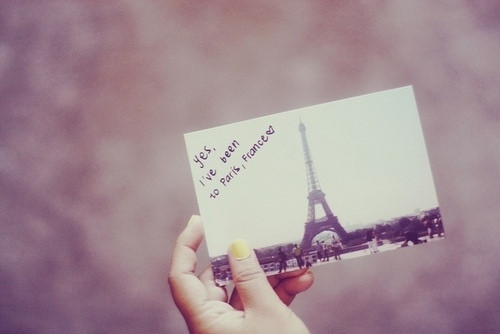 yes,
I've been
to Paris, France♥